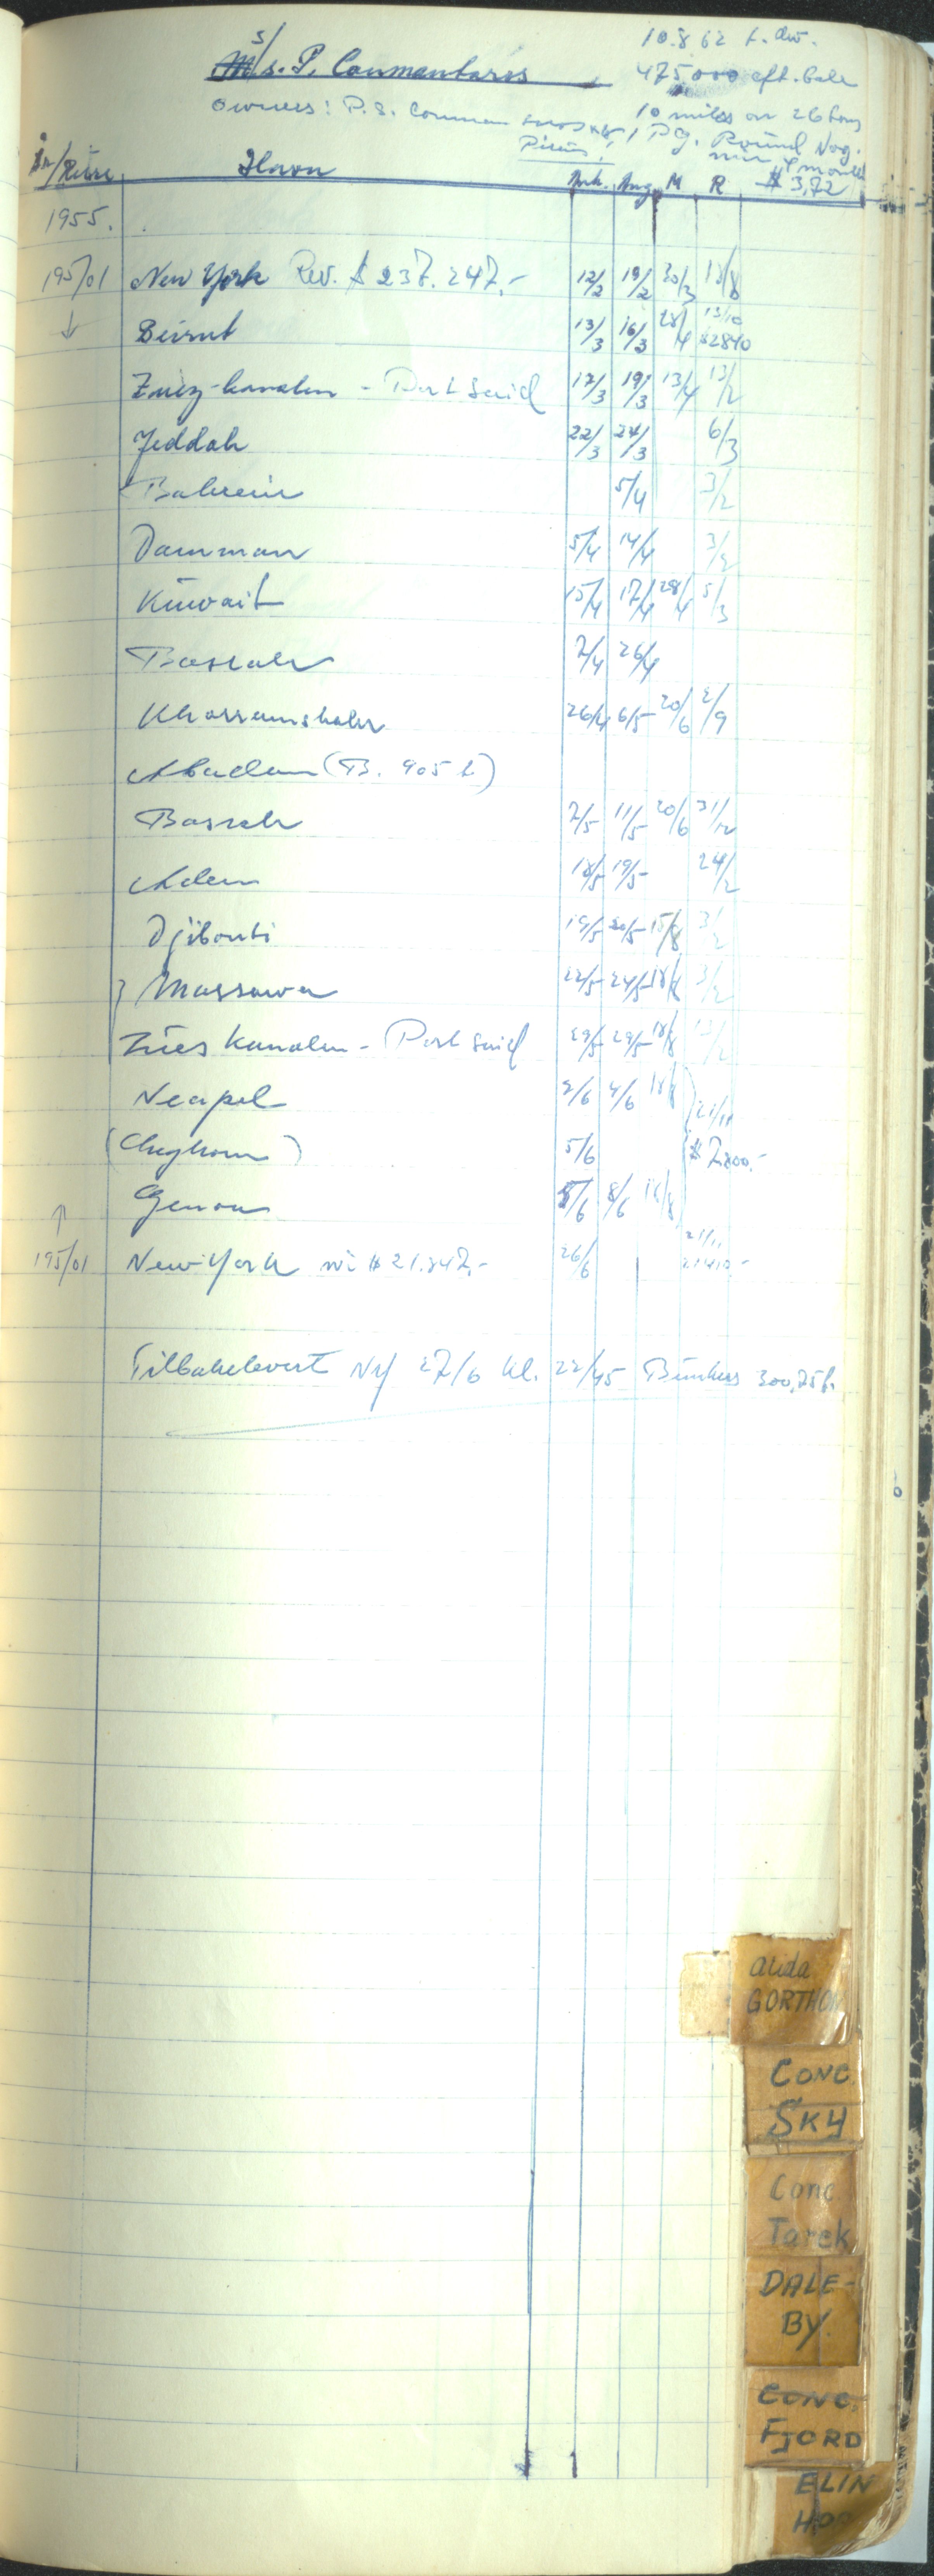 S/
M/s. P. Coumantaros
10.862 t. dw.
475,000 cft. bale
Owners: P. S.
10 miles on 26 tons
1 P.G. Round
$ 3,72
År/Reise Havn Ank. Avg. M R
1955.
195/01 New York Rev. $ 237.247,- 12/2 19/2 20/3
Beirut 13/3 16/3 28/4 13/10 $2840
Zuez-kanalen - Port Said 17/3 19/3 13/4 13/2
Jeddah 22/3 24/3 6/3
Bahrein 5/4 3/2
Damman 5/4 14/4 3/2
Kuwait 15/4 17/4 28/4 5/3
Basrah 7/4 26/4
Khorramshahr 26/4 6/5 20/6 2/9
Abadan (B. 905 t)
Basrah 7/5 11/5 20/6 31/12
Aden 18/5 19/5 24/2
Djibouti 19/5 20/5 15/8 3/2
Massawa 22/5 24/5 18/8 3/2
Zues kanalen - Port Said 29/5 29/5 18/8
Neapel 2/6 4/6 18/8 21/11
(Leghorn) 5/6
Genoa 5/6 8/6 18/8
195/01 New-York 26/6 21/11
Tilbakelevert NY 27/6 kl. 22/45 Bunkers 300,75 t.
Alida
GORTHON
CONC
SKY
Conc.
Tarek
DALE-
BY.
CONC.
FJORD
ELIN